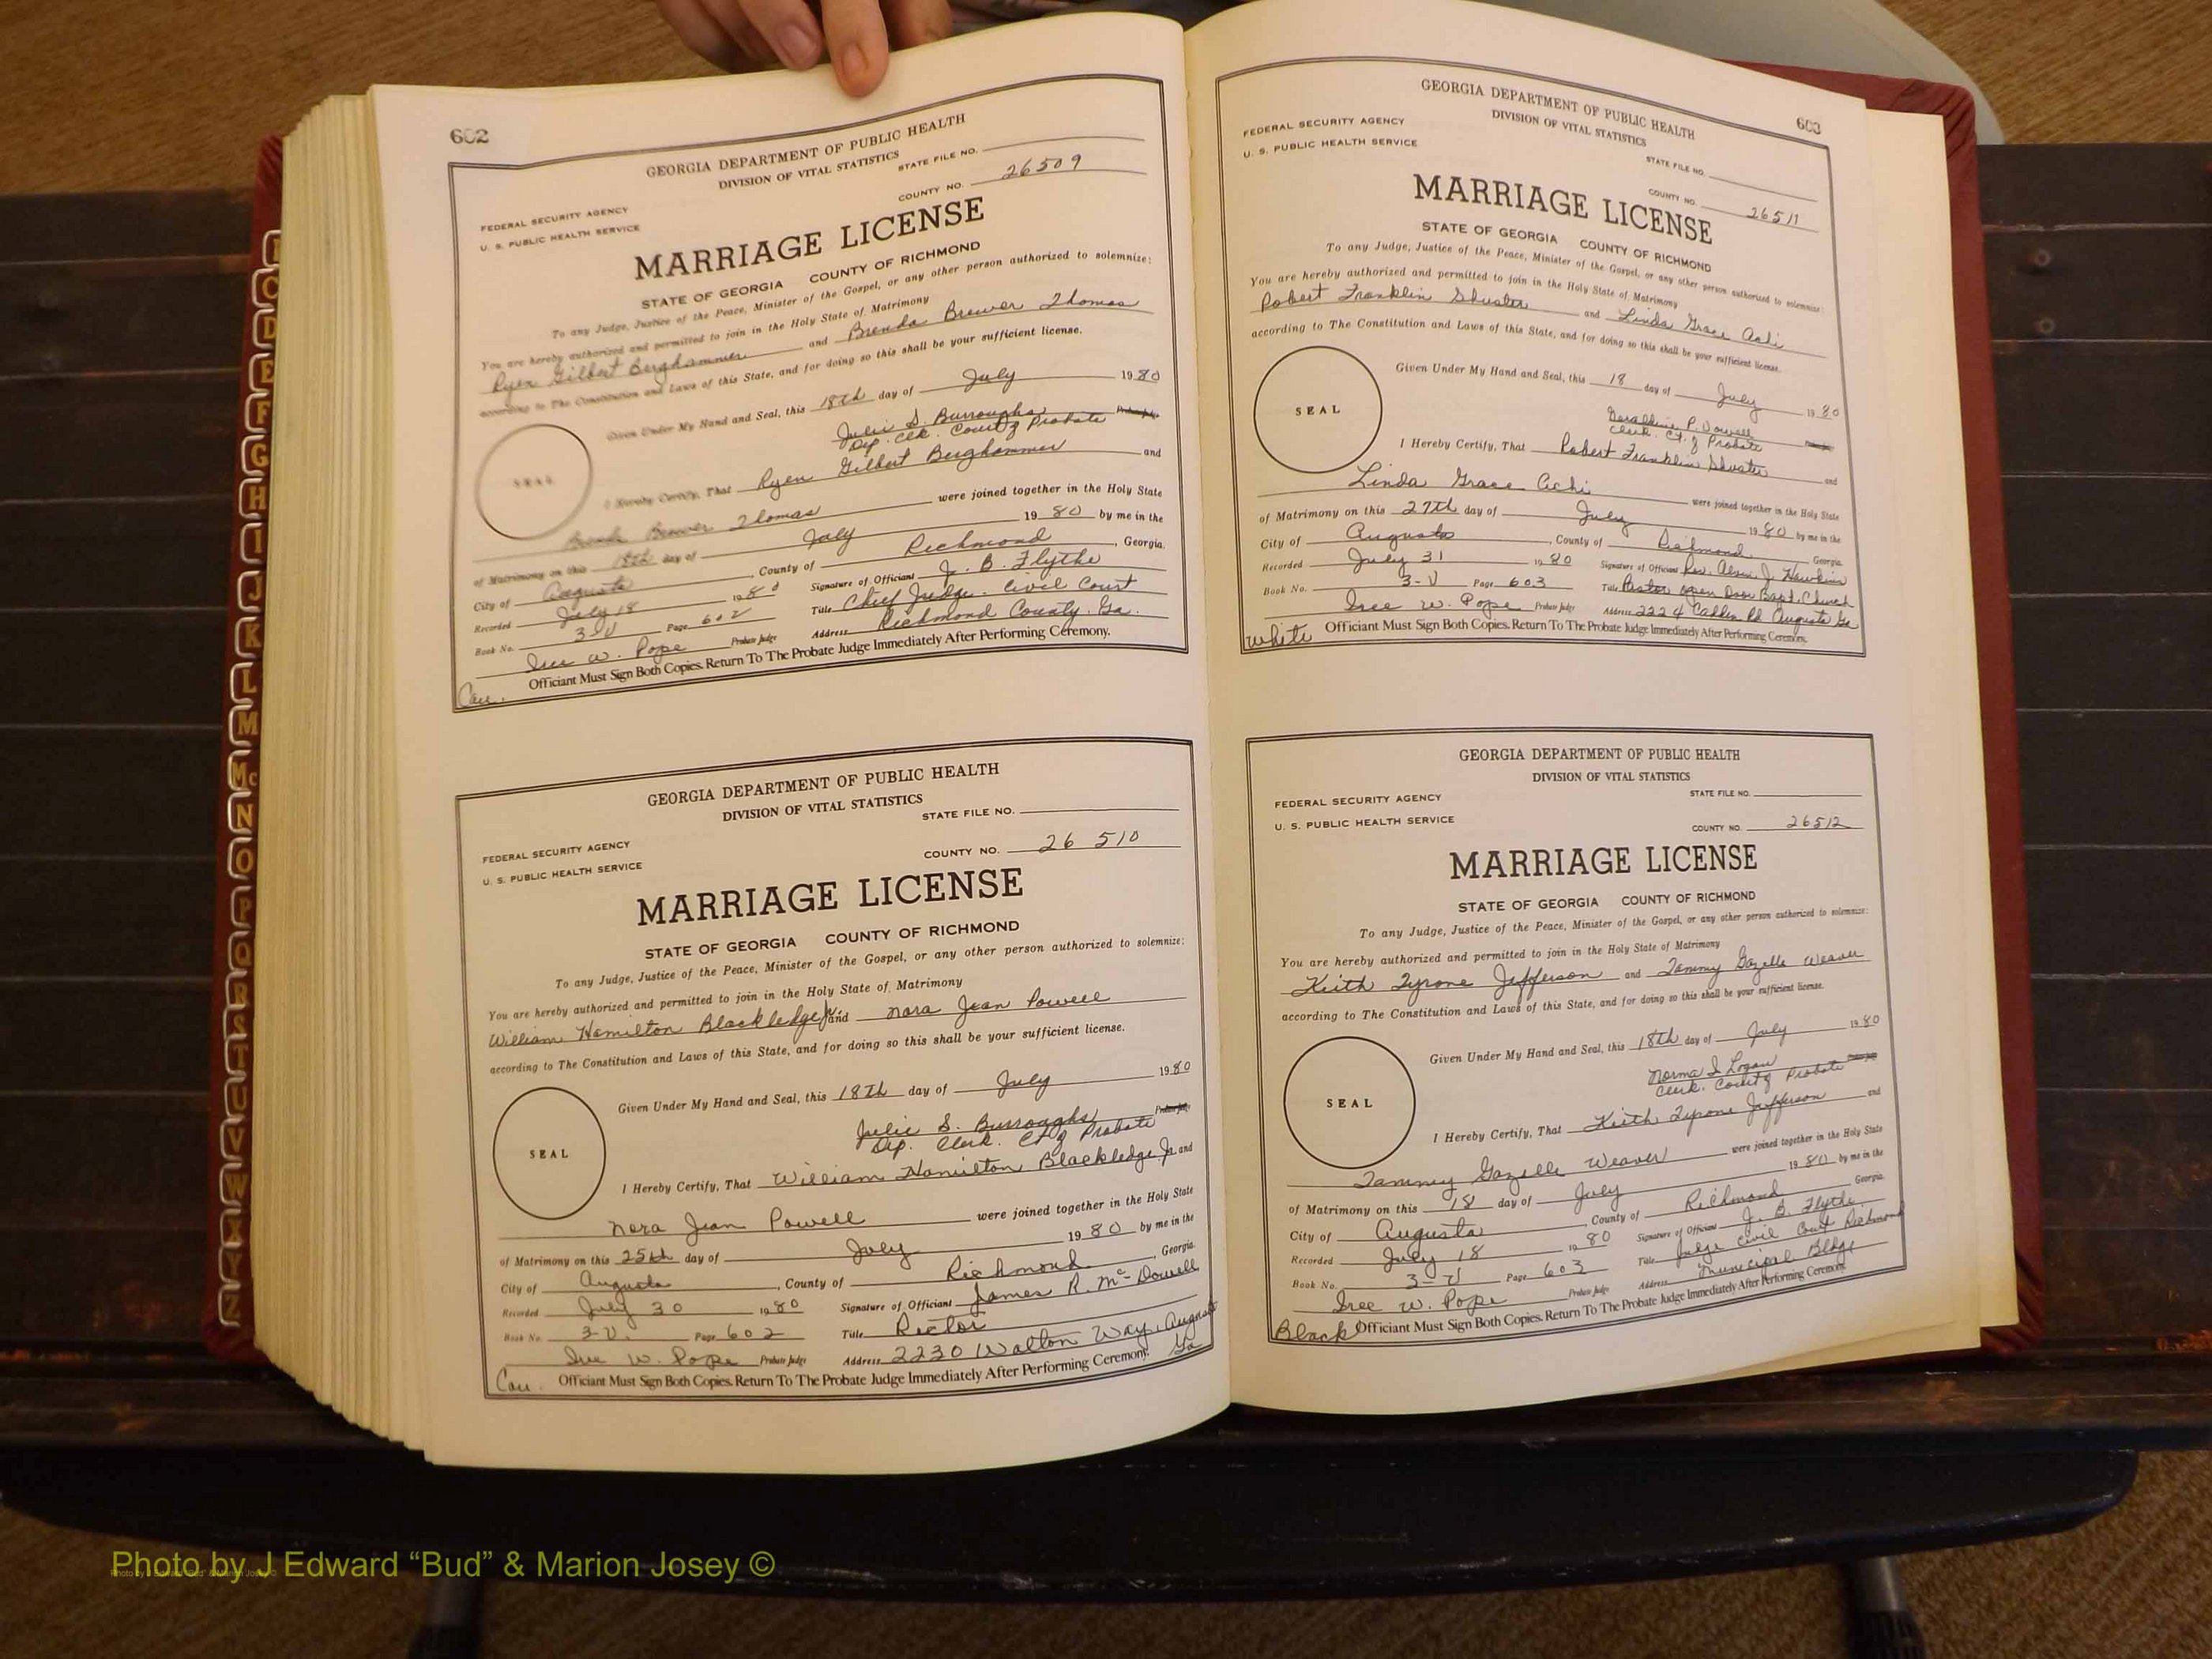 602
GEORGIA DEPARTMENT OF PUBLIC HEALTH
DIVISION OF VITAL STATISTICS
STATE FILE NO.
COUNTY NO. 26509
FEDERAL SECURITY AGENCY
U. S. PUBLIC HEALTH SERVICE
MARRIAGE LICENSE
STATE OF GEORGIA COUNTY OF RICHMOND
To any Judge, Justice of the Peace, Minister of the Gospel, or any other person authorized to solemnize:
You are hereby authorized and permitted to join in the Holy State of Matrimony
Ryen Gilbert Berghammer and Brenda Brewer Thomas
according to The Constitution and Laws of this State, and for doing so this shall be your sufficient license.
Given Under My Hand and Seal, this 18th day of July 1980
Julie S. Burroughs
Dep. Clk. Court of Probate
SEAL
I Hereby Certify, That Ryen Gilbert Berghammer and
Brenda Brewer Thomas were joined together in the Holy State
of Matrimony on this 18th day of July 19 80 by me in the
City of Augusta, County of Richmond, Georgia.
Recorded July 18 1980 Signature of Officiant J. B. Flythe
Book No. 3-U Page 602 Title Chief Judge. Civil Court
W. Pope Probate Judge Address Richmond County. Ga.
Officiant Must Sign Both Copies. Return To The Probate Judge Immediately After Performing Ceremony.
Cau.
GEORGIA DEPARTMENT OF PUBLIC HEALTH
DIVISION OF VITAL STATISTICS
STATE FILE NO.
COUNTY NO. 26 510
FEDERAL SECURITY AGENCY
U. S. PUBLIC HEALTH SERVICE
MARRIAGE LICENSE
STATE OF GEORGIA COUNTY OF RICHMOND
To any Judge, Justice of the Peace, Minister of the Gospel, or any other person authorized to solemnize:
You are hereby authorized and permitted to join in the Holy State of Matrimony
William Hamilton Blackledge Jr and Nora Jean Powell
according to The Constitution and Laws of this State, and for doing so this shall be your sufficient license.
Given Under My Hand and Seal, this 18th day of July 1980
Julie S. Burroughs
Dep. Clerk. Ct of Probate
SEAL
I Hereby Certify, That William Hamilton Blackledge Jr. and
Nora Jean Powell were joined together in the Holy State
of Matrimony on this 25th day of July 19 80 by me in the
City of Augusta, County of Richmond, Georgia.
Recorded July 30 1980 Signature of Officiant James R. McDowell
Book No. 3-U. Page 602 Title Rector
W. Pope Probate Judge Address 2230 Walton Way, Augusta Ga
Officiant Must Sign Both Copies. Return To The Probate Judge Immediately After Performing Ceremony.
Cau.
603
GEORGIA DEPARTMENT OF PUBLIC HEALTH
DIVISION OF VITAL STATISTICS
FEDERAL SECURITY AGENCY
U. S. PUBLIC HEALTH SERVICE
STATE FILE NO.
COUNTY NO. 26511
MARRIAGE LICENSE
STATE OF GEORGIA COUNTY OF RICHMOND
To any Judge, Justice of the Peace, Minister of the Gospel, or any other person authorized to solemnize:
You are hereby authorized and permitted to join in the Holy State of Matrimony
Robert Franklin and Linda Grace Achi
according to The Constitution and Laws of this State, and for doing so this shall be your sufficient license.
Given Under My Hand and Seal, this 18 day of July 1980
Geraldine P. Dowell
Clerk. Ct. of Probate
SEAL
I Hereby Certify, That Robert Franklin and
Linda Grace Achi were joined together in the Holy State
of Matrimony on this 27th day of July 1980 by me in the
City of Augusta, County of Richmond, Georgia.
Recorded July 31 1980 Signature of Officiant Rev. J. Hawkins
Book No. 3-U Page 603 Title Pastor Open Door Bapt. Church
W. Pope Probate Judge Address 2224 Rd Augusta Ga
Officiant Must Sign Both Copies. Return To The Probate Judge Immediately After Performing Ceremony.
White
GEORGIA DEPARTMENT OF PUBLIC HEALTH
DIVISION OF VITAL STATISTICS
STATE FILE NO.
FEDERAL SECURITY AGENCY
U. S. PUBLIC HEALTH SERVICE
COUNTY NO. 26512
MARRIAGE LICENSE
STATE OF GEORGIA COUNTY OF RICHMOND
To any Judge, Justice of the Peace, Minister of the Gospel, or any other person authorized to solemnize:
You are hereby authorized and permitted to join in the Holy State of Matrimony
Keith Tyrone Jefferson and Tammy Gazelle Weaver
according to The Constitution and Laws of this State, and for doing so this shall be your sufficient license.
Given Under My Hand and Seal, this 18th day of July 1980
Norma I Logan
Clerk. Court of Probate
SEAL
I Hereby Certify, That Keith Tyrone Jefferson and
Tammy Gazelle Weaver were joined together in the Holy State
of Matrimony on this 18 day of July 1980 by me in the
City of Augusta, County of Richmond Georgia.
Recorded July 18 1980 Signature of Officiant J. B. Flythe
Book No. 3-U Page 603 Title Judge Civil Court Richmond
W. Pope Probate Judge Address Municipal Bldg
Officiant Must Sign Both Copies. Return To The Probate Judge Immediately After Performing Ceremony.
Black
C
D
E
F
G
H
I
J
K
L
M
Mc
N
O
P
Q
R
S
T
U
V
W
X
Y
Z
Photo by J Edward “Bud” & Marion Josey ©